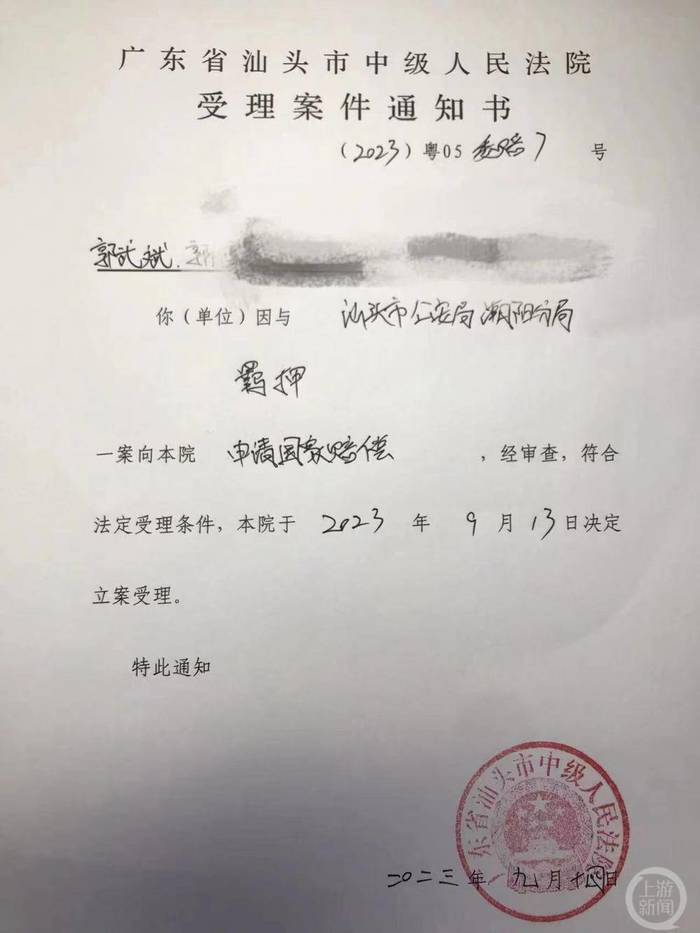 广东省汕头市中级人民法院
受理案件通知书
（2023）粤05 委赔7 号
郭武斌、郭
你（单位）因与 汕头市公安局潮阳分局
羁押
一案向本院 申请国家赔偿 ，经审查，符合
法定受理条件，本院于 2023 年 9 月 13日决定
立案受理。
特此通知
广东省汕头市中级人民法院
二〇二三年九月十四日
上游
新闻